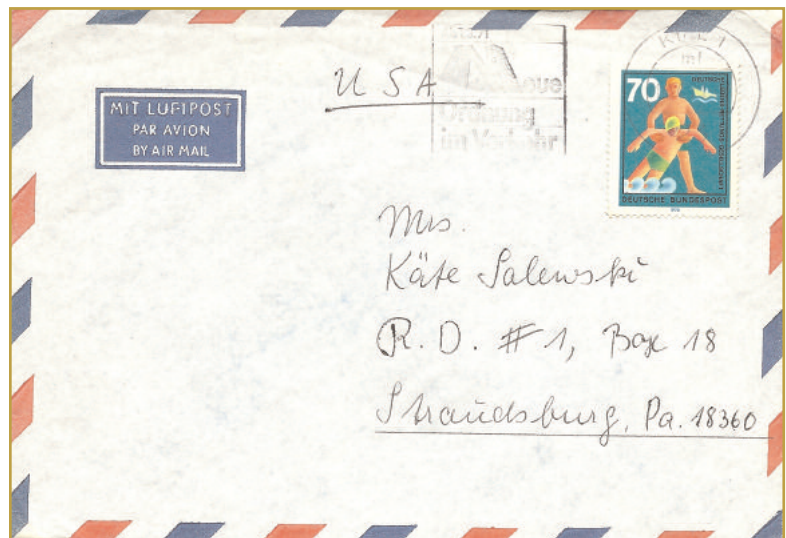 MIT LUFTPOST
PAR AVION
BY AIR MAIL
USA
neue
Ordnung
im Verkehr
70
DEUTSCHE BUNDESPOST
Mrs.
Käte Salewski
R. D. #1, Box 18
Straudsburg, Pa. 18360